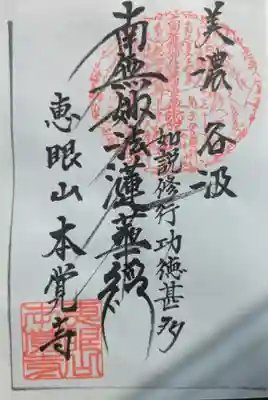 美濃 谷汲
如説修行 功徳甚多
南無妙法蓮華経
恵眼山 本覚寺